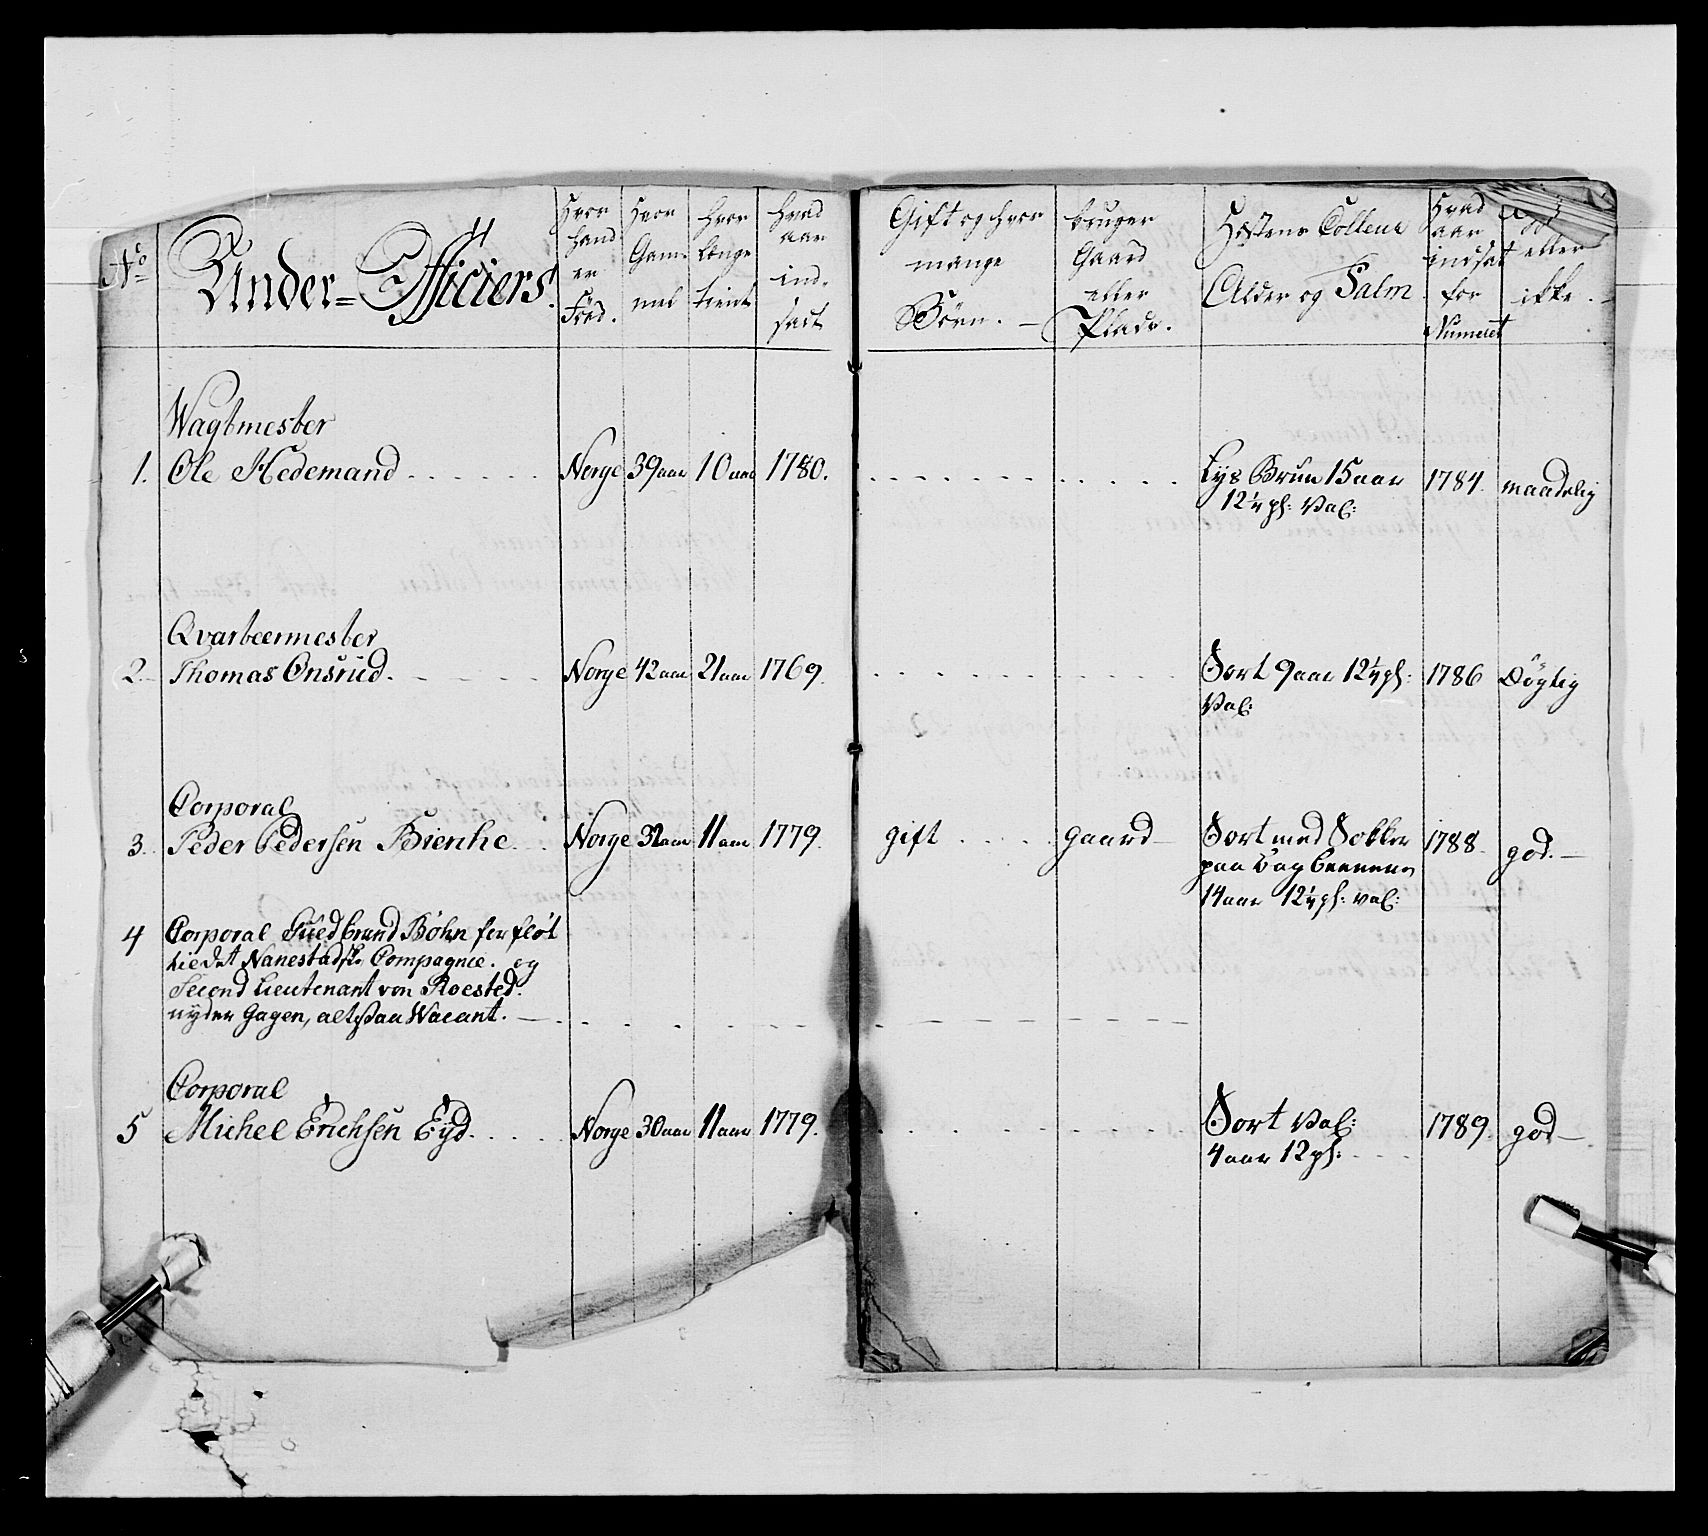 No
Under=Officiers.
Hvor
hand
er
Föd.
Hvor
Gam¬
mel
hvor
længe
tient
hvad
aar
ind¬
sadt
Gift og hvor
mange
Börn. —
bruger
Gaard
eller
Plads.
Hæstens Colleur
Alder og Palm
Hvad
aar
indsat
for
Numeret
eller
ikke.
Wagtmester
1. Ole Hedemand . . . . . . Norge 39 aar 10 aar 1780. Lys Brun 15 aar 1784. maadelig
12¼ pl: Val:
Qvarteermester
2. Thomas Onsrud. . . . . . Norge 42 aar 21 aar 1769. Sort 9 aar 12¼ pl: 1786 Dögtig
Val:
Corporal
3. Peder Pedersen Bienke . . Norge 32 aar 11 aar 1779. gift . . . . . gaard — Sort med Sokker 1788. god. —
paa Bag beenene
14 aar 12¼ pl: Val:
4 Corporal Guldbrand Böhn forfløt
til det Nanestadske Compagnie. og
Second Lieutenant von Roested.
nyder Gagen, altsaa Wacant. —
Corporal
5 Michel Erichsen Eyd. . . . . Norge 30 aar 11 aar 1779. Sort Val: 1789. god —
4 aar 12 pl: . . .